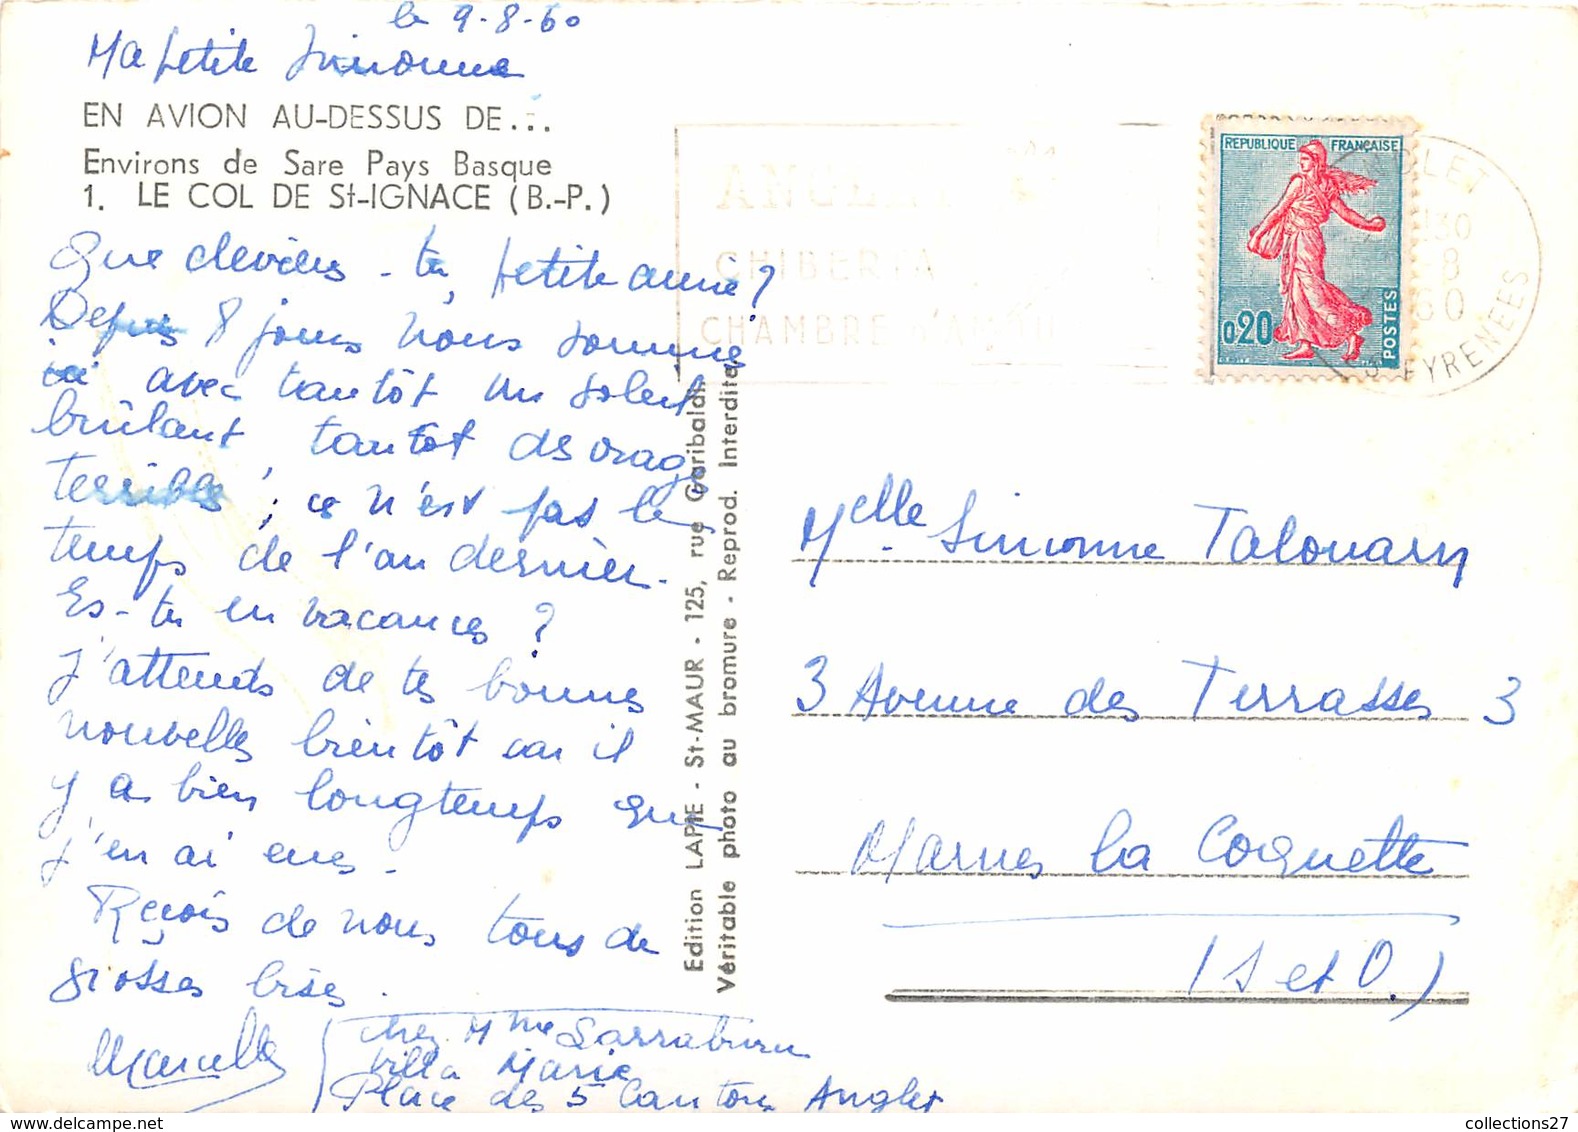 le 9-8-60
Ma petite Simonne
EN AVION AU-DESSUS DE...
Environs de Sare Pays Basque
1. LE COL DE St-IGNACE (B.-P.)
Que deviens-tu, petite amie?
Depuis 8 jours nous somme
ici avec tantôt un soleil
brûlant, tantôt des orages
terribles; ce n'est pas le
temps de l'an dernier.
Es-tu en vacances?
J'attends de tes bonnes
nouvelles bientôt car il
y a bien longtemps que
j'en ai eues.
Reçois de nous tous de
grosses bises.
Marcelle
chez Mme Larraburu
Villa Marie
Place des 5 Cantons Anglet
Edition LAPIE - St-MAUR - 125, rue Garibaldi.
Véritable photo au bromure - Reprod. Interdite
ANGLET
CHIBERTA
CHAMBRE D'AMOUR
REPUBLIQUE FRANÇAISE
0,20
POSTES
ANGLET
30
-8
60
PYRENEES
Melle Simonne Talouarn
3 Avenue des Terrasses 3
Marnes la Coquette
(S et O.)
collections27